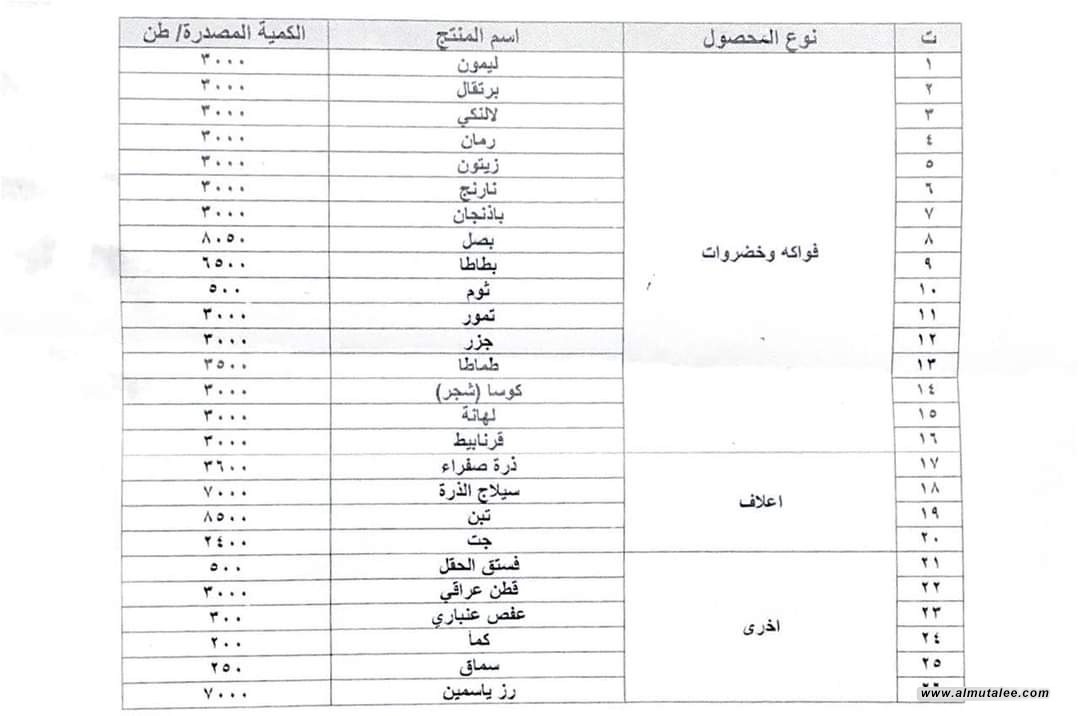 ت نوع المحصول اسم المنتج الكمية المصدرة/ طن
١ ليمون ٣٠٠٠
٢ برتقال ٣٠٠٠
٣ لالنكي ٣٠٠٠
٤ رمان ٣٠٠٠
٥ زيتون ٣٠٠٠
٦ نارنج ٣٠٠٠
٧ باذنجان ٣٠٠٠
٨ فواكه وخضروات بصل ٨٠٥٠
٩ بطاطا ٦٥٠٠
١٠ ثوم ٥٠٠
١١ تمور ٣٠٠٠
١٢ جزر ٣٠٠٠
١٣ طماطا ٣٥٠٠
١٤ كوسا (شجر) ٣٠٠٠
١٥ لهانة ٣٠٠٠
١٦ قرنابيط ٣٠٠٠
١٧ ذرة صفراء ٣٦٠٠
١٨ اعلاف سيلاج الذرة ٧٠٠٠
١٩ تبن ٨٥٠٠
٢٠ جت ٢٤٠٠
٢١ فستق الحقل ٥٠٠
٢٢ قطن عراقي ٣٠٠٠
٢٣ اخرى عفص عنباري ٣٠٠
٢٤ كمأ ٢٠٠
٢٥ سماق ٢٥٠
رز ياسمين ٧٠٠٠
www.almutalee.com